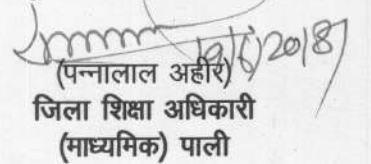 19/6/2018
(पन्नालाल अहीर)
जिला शिक्षा अधिकारी
(माध्यमिक) पाली